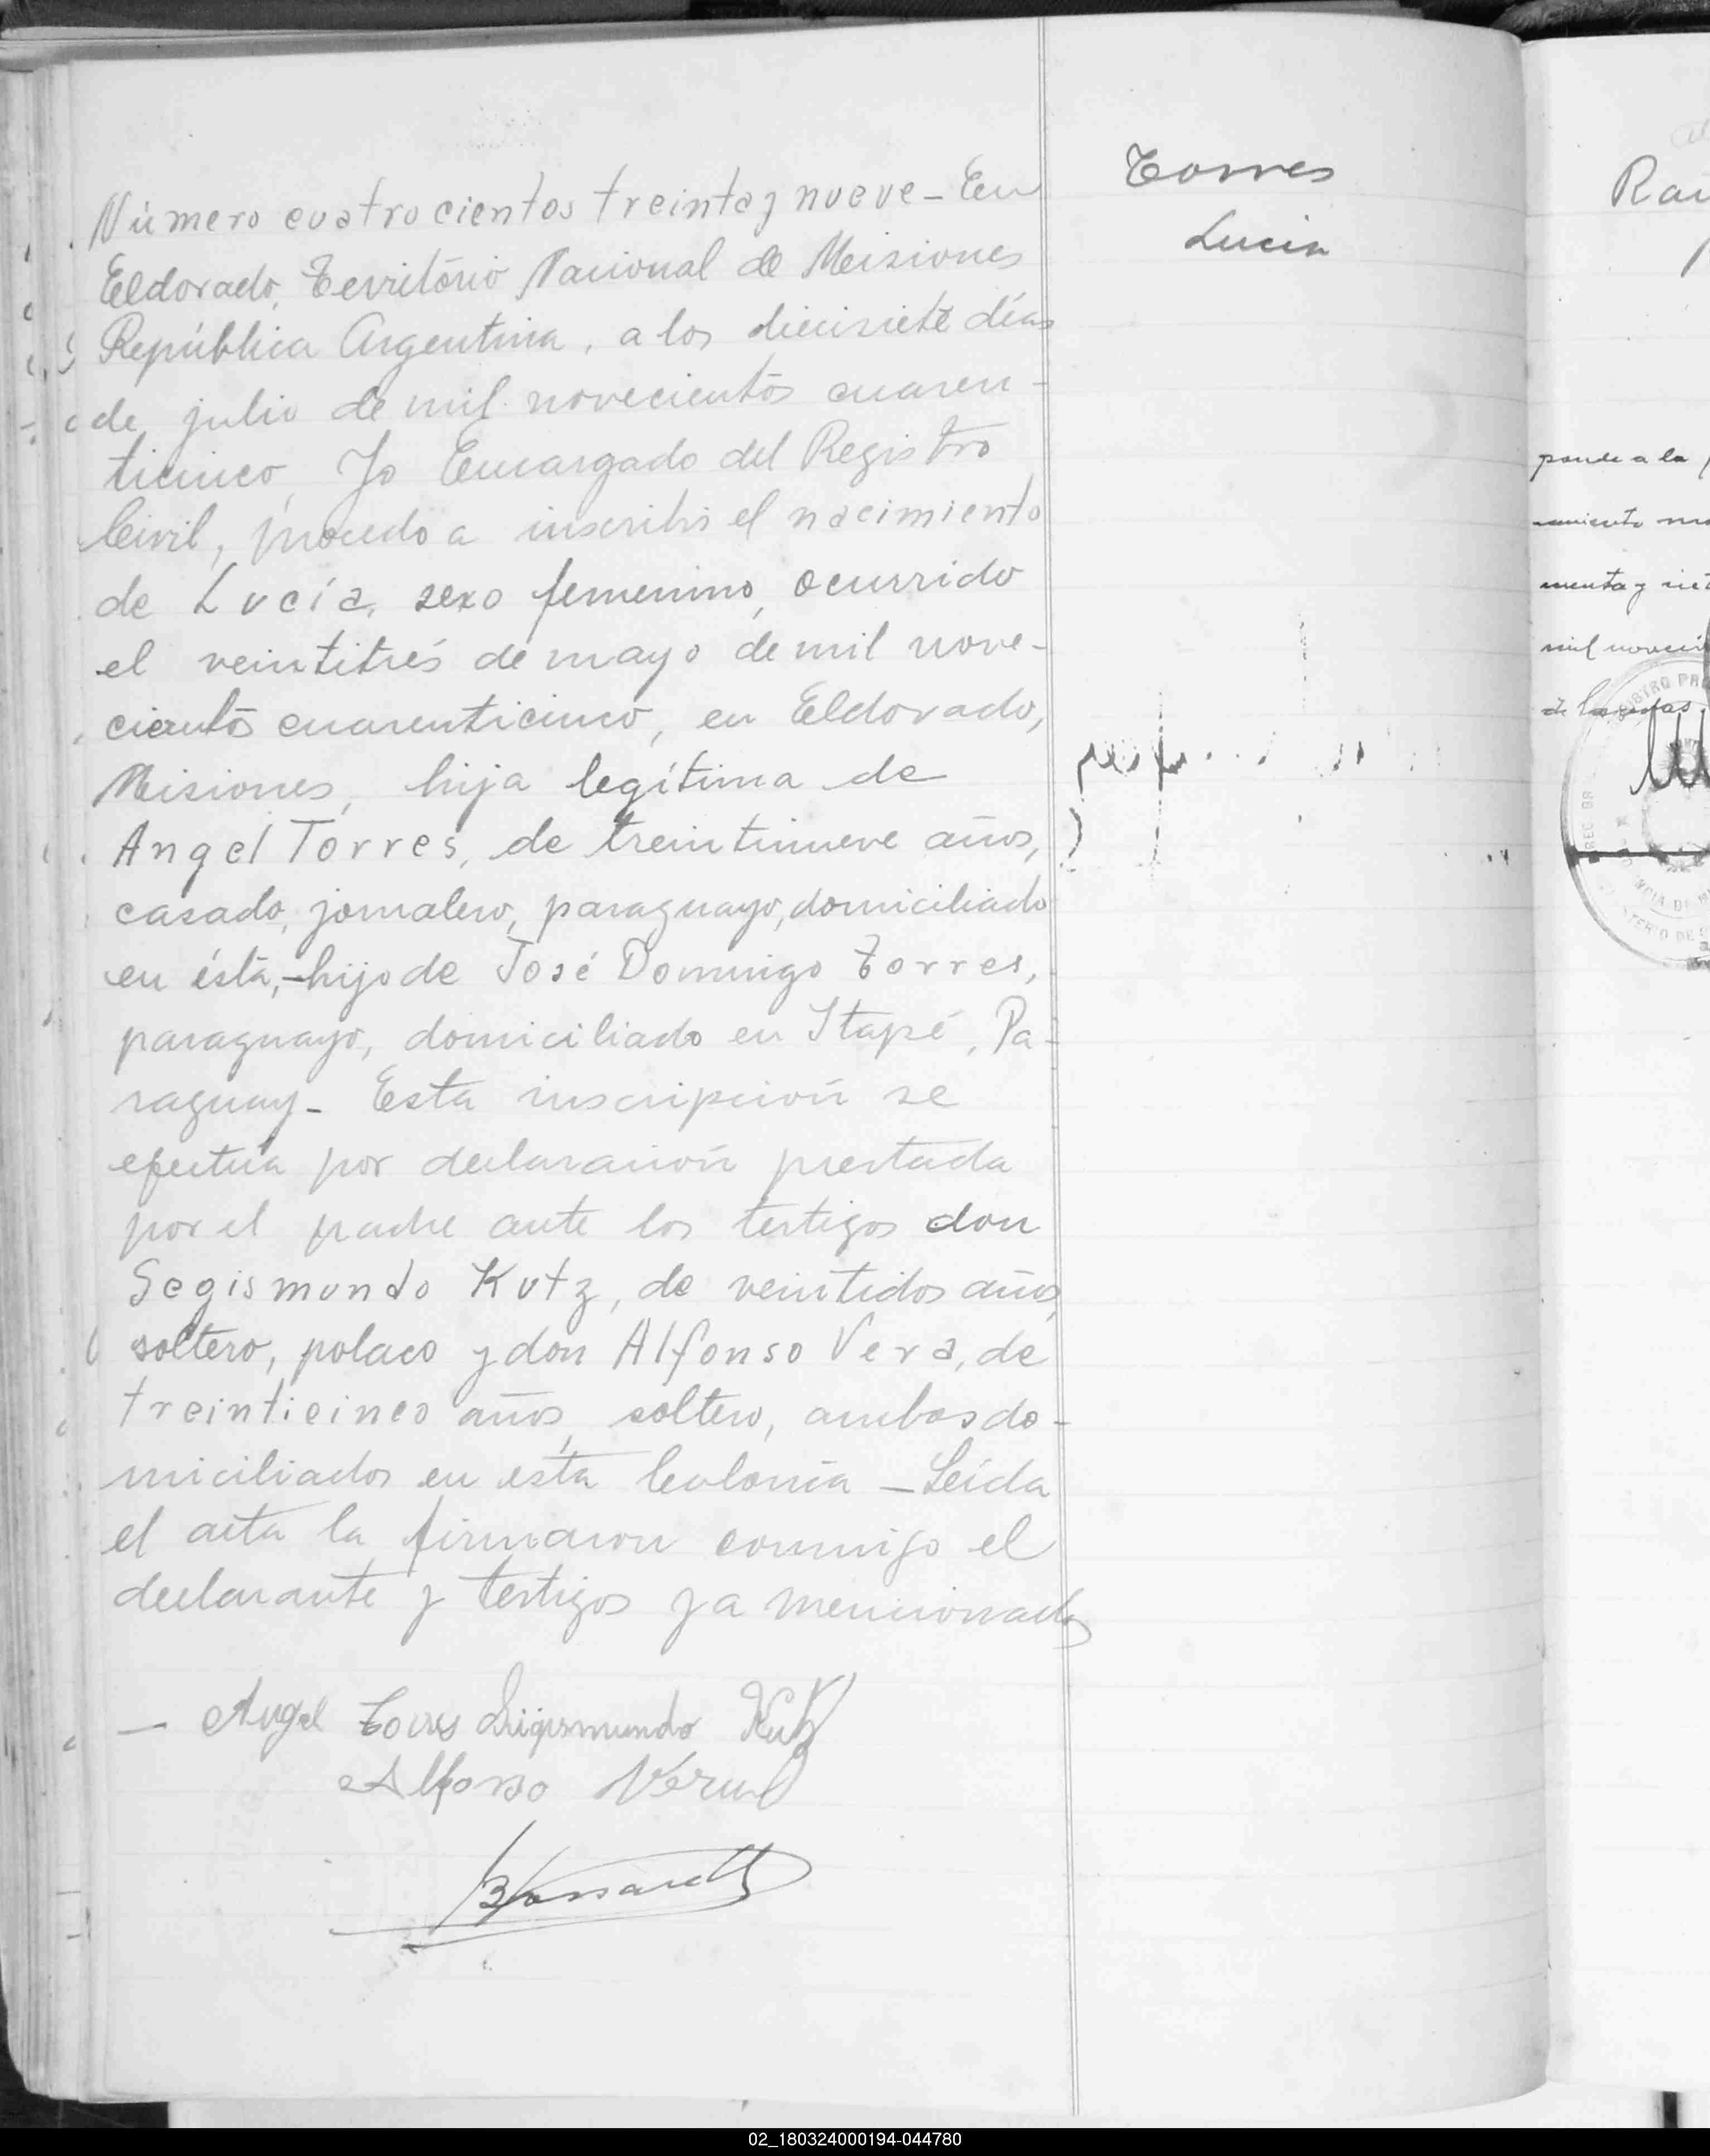 Número cuatrocientos treinta y nueve - En
Eldorado, Território Nacional de Misiones
República Argentina, a los diecisiete días
de julio de mil novecientos cuaren-
ticinco, Yo Encargado del Registro
Civil, procedo a inscribir el nacimiento
de Lucía, sexo femenino, ocurrido
el veintitrés de mayo de mil nove-
cientos cuarenticinco, en Eldorado,
Misiones, hija legítima de
Angel Torres, de treintinueve años,
casado, jornalero, paraguayo, domiciliado
en ésta, - hijo de José Domingo Torres,
paraguayo, domiciliado en Itapé, Pa-
raguay - Esta inscripción se
efectúa por declaración prestada
por el padre ante los testigos don
Segismundo Kutz, de veintidos años,
soltero, polaco y don Alfonso Vera, de
treinticinco años, soltero, ambos do-
miciliados en ésta Colonia - Leída
el acta la firmaron conmigo el
declarante y testigos ya mencionados
- Angel Torres Sigismundo Kutz
Alfonso Vera
Torres
Lucia
Rau
ponde a la
mil noveci
02_180324000194-044780